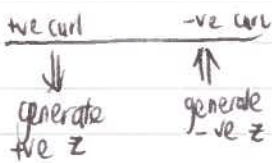 +ve curl -ve curl
generate generate
+ve z -ve z